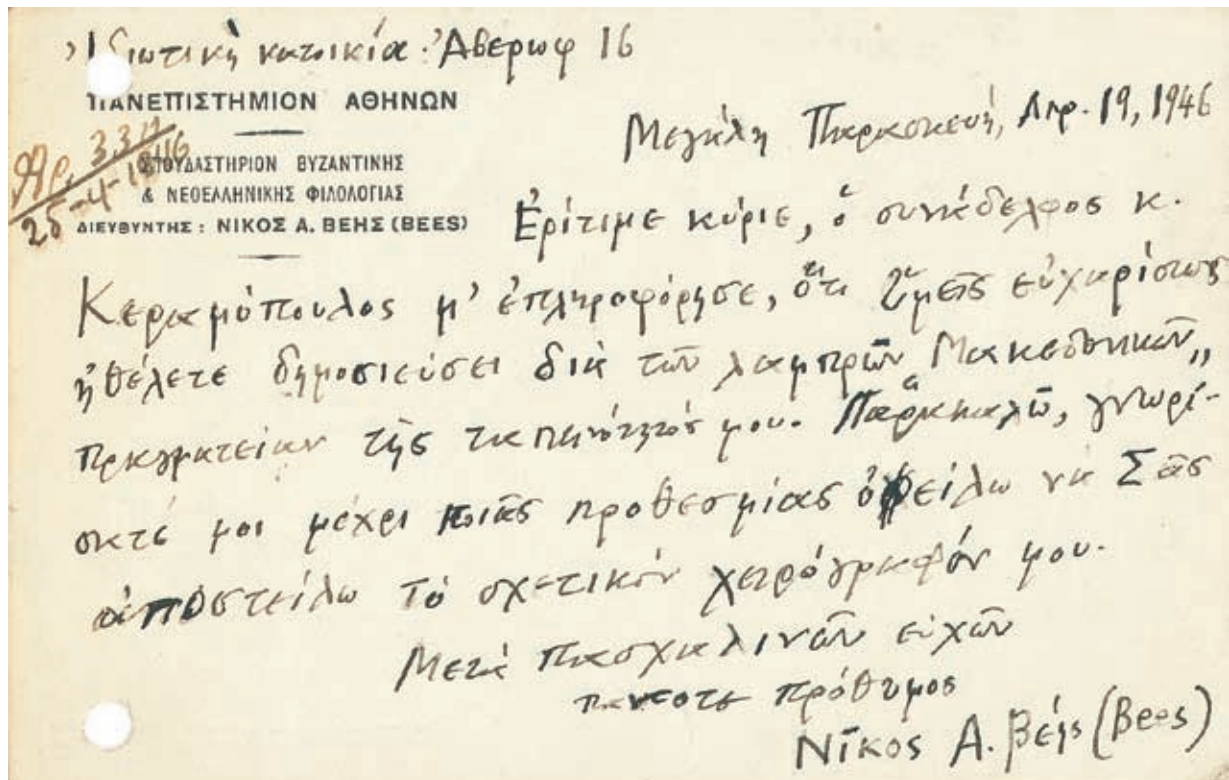 Ἰδιωτικὴ κατοικία: Ἀβέρωφ 16
ΠΑΝΕΠΙΣΤΗΜΙΟΝ ΑΘΗΝΩΝ
Μεγάλη Παρασκευή, Απρ. 19, 1946
Αρ. 334
25-4-1946
ΣΠΟΥΔΑΣΤΗΡΙΟΝ ΒΥΖΑΝΤΙΝΗΣ
& ΝΕΟΕΛΛΗΝΙΚΗΣ ΦΙΛΟΛΟΓΙΑΣ
ΔΙΕΥΘΥΝΤΗΣ : ΝΙΚΟΣ Α. ΒΕΗΣ (BEES)
Ἐρίτιμε κύριε, ὁ συνάδελφος κ.
Κεραμόπουλος μ' ἐπληροφόρησε, ὅτι Ὑμεῖς εὐχαρίστως
ἠθέλετε δημοσιεύσει διὰ τῶν λαμπρῶν Μακεδονικῶν„
πραγματείαν τῆς ταπεινότητός μου. Παρακαλῶ, γνωρί-
σατέ μοι μέχρι ποιᾶς προθεσμίας ὀφείλω νὰ Σᾶς
ἀποστείλω τὸ σχετικόν χειρόγραφόν μου.
Μετὰ πασχαλινῶν εὐχῶν
πάντοτε πρόθυμος
Νῖκος Α. Βέης (Bees)